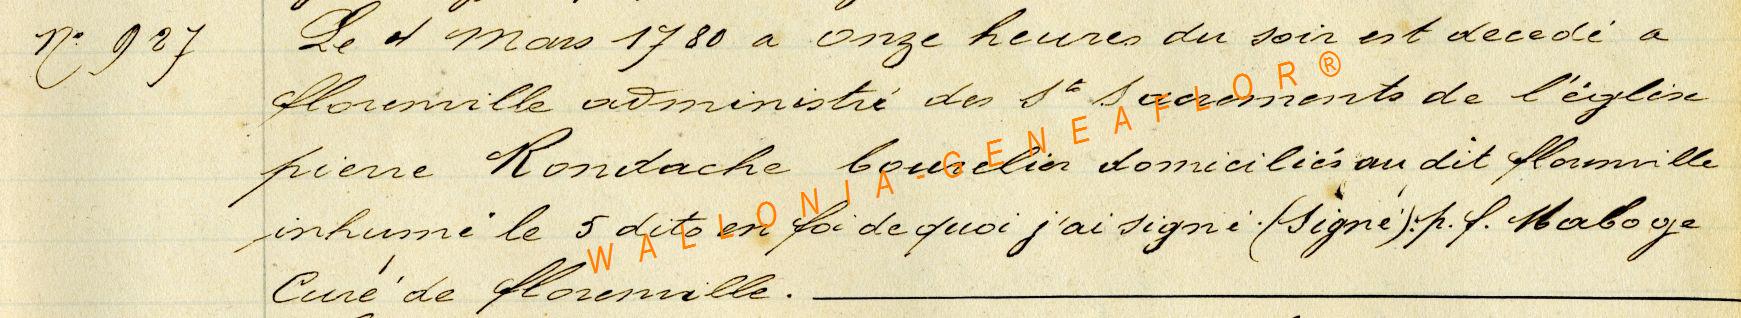 N° 927 Le 4 Mars 1780 a onze heures du soir est decedé a
florenville administré des Sts Sacrements de l'église
pierre Rondache bourelier domiciliés au dit florenville
inhumé le 5 dito en foi de quoi j'ai signé. (Signé): p. f. Maboge
Curé de florenville.
WALLONIA-GENEAFLOR®